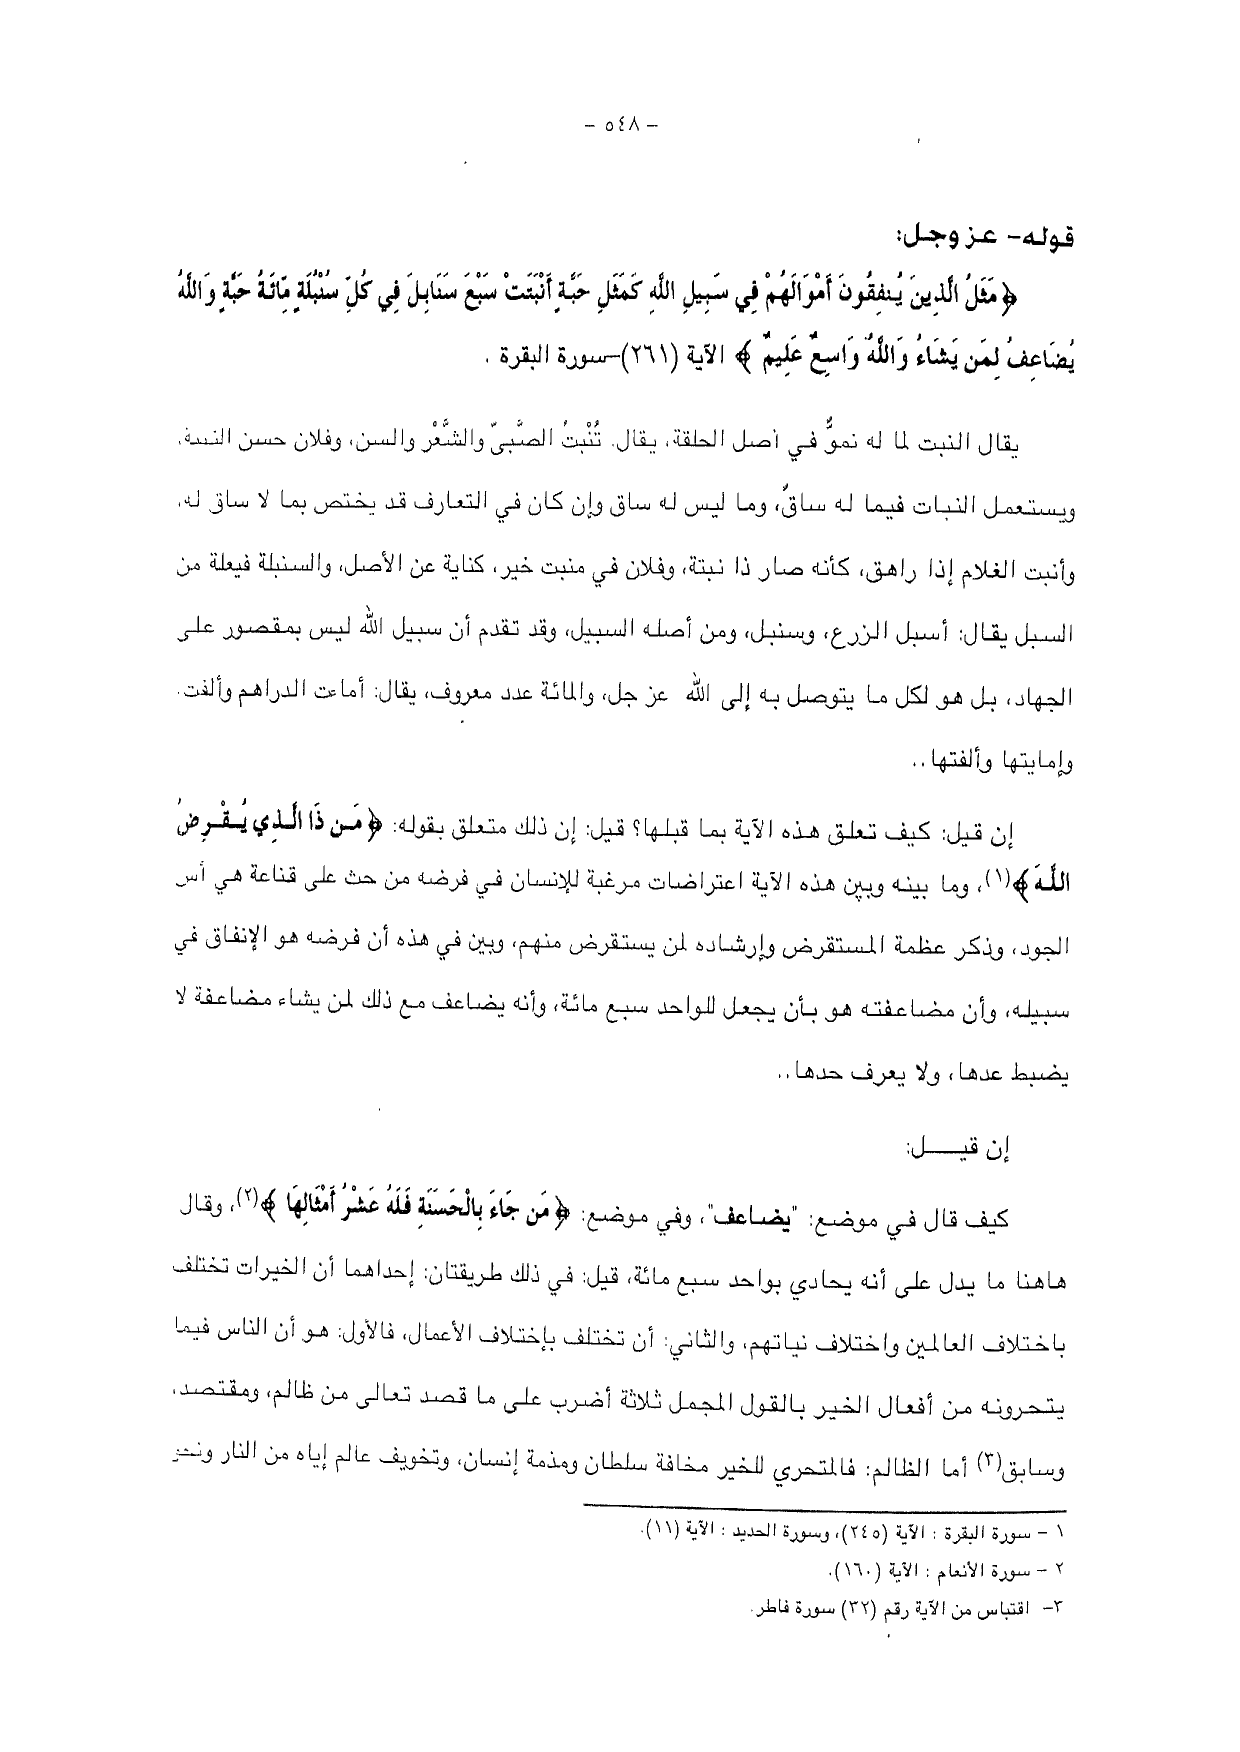 - ٥٤٨ -
قوله- عز وجل:
﴿ مَثَلُ الَّذِينَ يُنفِقُونَ أَمْوَالَهُمْ فِي سَبِيلِ اللَّهِ كَمَثَلِ حَبَّةٍ أَنْبَتَتْ سَبْعَ سَنَابِلَ فِي كُلِّ سُنْبُلَةٍ مِّائَةُ حَبَّةٍ وَاللَّهُ
يُضَاعِفُ لِمَن يَشَاءُ وَاللَّهُ وَاسِعٌ عَلِيمٌ ﴾ الآية (٢٦١)-سورة البقرة .
يقال النبت لما له نموٌّ في أصل الحلقة، يقال. تُنْبتُ الصَّبيّ والشَّعْر والسن، وفلان حسن النبية.
ويستعمل النبات فيما له ساقٌ، وما ليس له ساق وإن كان في التعارف قد يختص بما لا ساق له.
وأنبت الغلام إذا راهق، كأنه صار ذا نبتة، وفلان في منبت خير، كناية عن الأصل، والسنبلة فيعلة من
السبل يقال: أسبل الزرع، وسنبل، ومن أصله السبيل، وقد تقدم أن سبيل الله ليس بمقصور على
الجهاد، بل هو لكل ما يتوصل به إلى الله عز جل، والمائة عدد معروف، يقال: أماءت الدراهم وألفت.
وإمايتها وألفتها..
إن قيل: كيف تعلق هذه الآية بما قبلها؟ قيل: إن ذلك متعلق بقوله: ﴿ مَن ذَا الَّذِي يُقْرِضُ
اللَّهَ ﴾(١)، وما بينه وبين هذه الآية اعتراضات مرغبة للإنسان في فرضه من حث على قناعة هي أس
الجود، وذكر عظمة المستقرض وإرشاده لمن يستقرض منهم، وبين في هذه أن فرضه هو الإنفاق في
سبيله، وأن مضاعفته هو بأن يجعل للواحد سبع مائة، وأنه يضاعف مع ذلك لمن يشاء مضاعفة لا
يضبط عدها، ولا يعرف حدها..
إن قيـــل:
كيف قال في موضع: "يضاعف"، وفي موضع: ﴿ مَن جَاءَ بِالْحَسَنَةِ فَلَهُ عَشْرُ أَمْثَالِهَا ﴾(٢)، وقال
هاهنا ما يدل على أنه يحادي بواحد سبع مائة، قيل: في ذلك طريقتان: إحداهما أن الخيرات تختلف
باختلاف العالمين واختلاف نياتهم، والثاني: أن تختلف بإختلاف الأعمال، فالأول: هو أن الناس فيما
يتحرونه من أفعال الخير بالقول المجمل ثلاثة أضرب على ما قصد تعالى من ظالم، ومقتصد،
وسابق(٣) أما الظالم: فالمتحري للخير مخافة سلطان ومذمة إنسان، وتخويف عالم إياه من النار ونحر
١ - سورة البقرة : الآية (٢٤٥)، وسورة الحديد : الآية (١١).
٢ - سورة الأنعام : الآية (١٦٠).
٣- اقتباس من الآية رقم (٣٢) سورة فاطر.